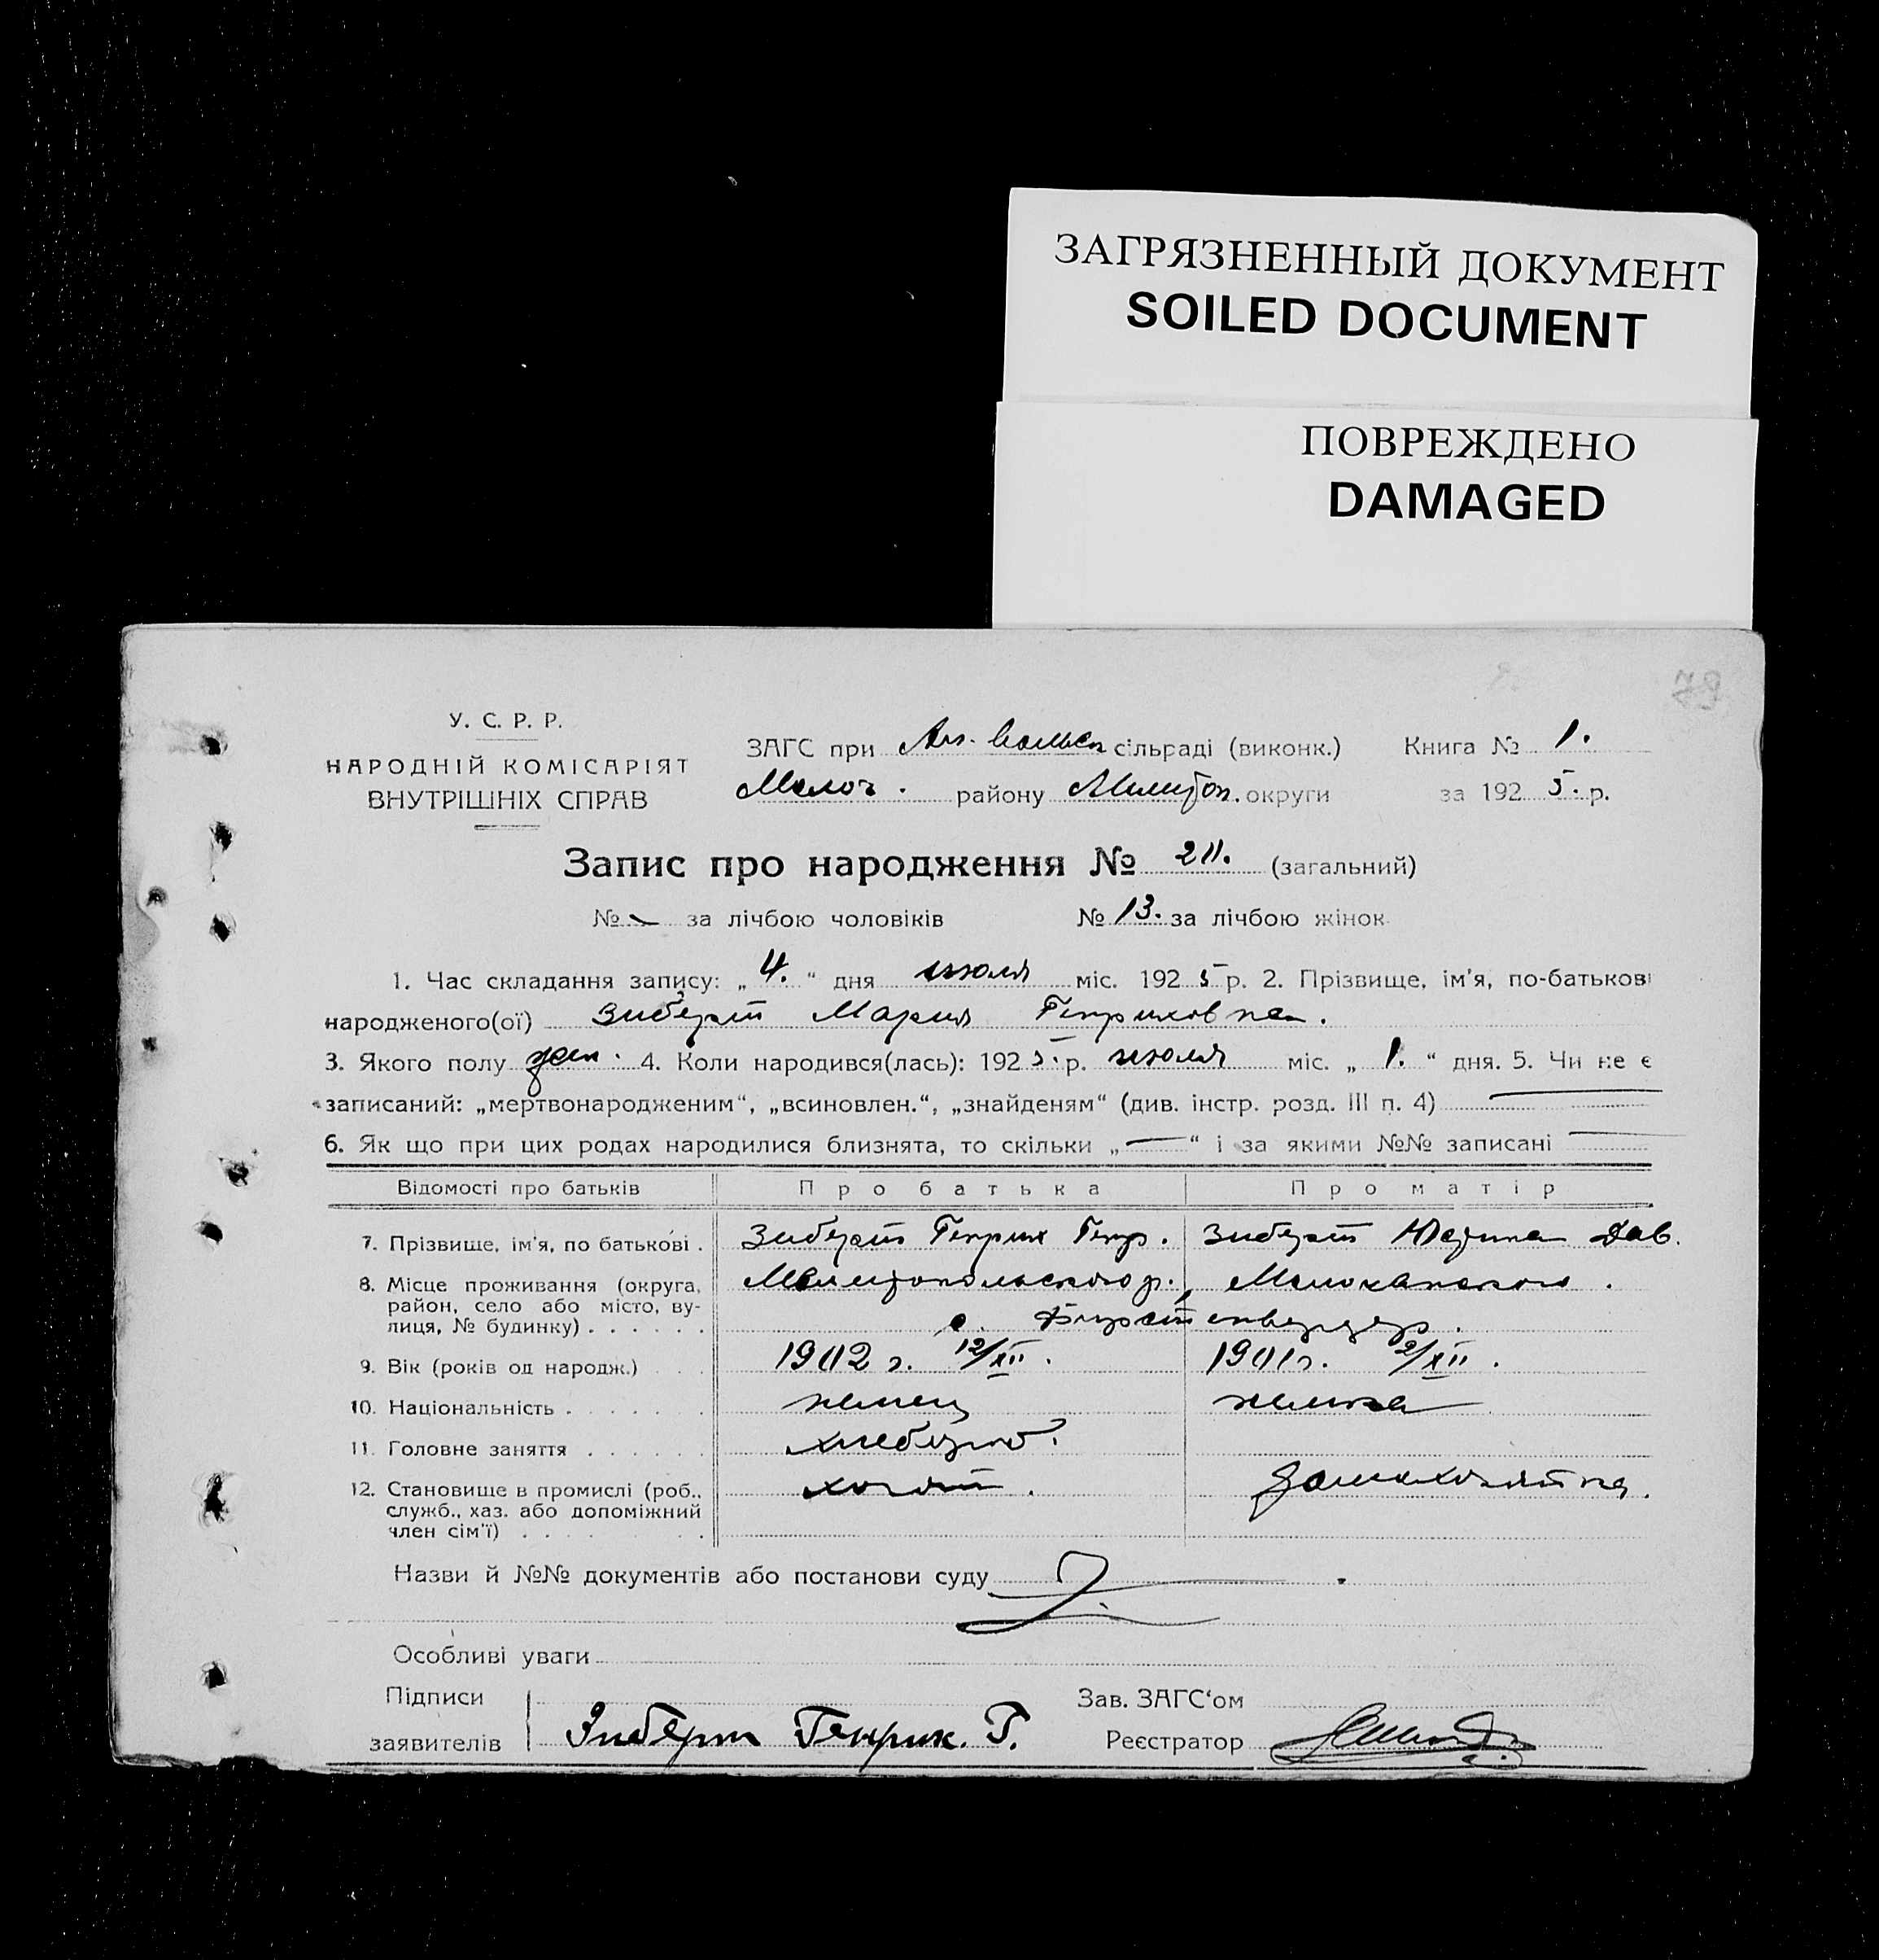 ЗАГРЯЗНЕННЫЙ ДОКУМЕНТ
SOILED DOCUMENT
ПОВРЕЖДЕНО
DAMAGED
79
У. С. Р. Р.
НАРОДНІЙ КОМІСАРІЯТ
ВНУТРІШНІХ СПРАВ
ЗАГС при сільраді (виконк.) Книга № 1.
Молоч. району Мелитоп. округи за 1925. р.
Запис про народження № 211. (загальний)
№ — за лічбою чоловіків № 13. за лічбою жінок
1. Час складання запису: „4.“ дня июля міс. 1925 р. 2. Прізвище, ім'я, по-батькові
народженого(ої) Зиберт Мария Генриховна.
3. Якого полу жен. 4. Коли народився(лась): 1925. р. июля міс. „1.“ дня. 5. Чи не є
записаний: „мертвонародженим“, „всиновлен.“, „знайденям“ (див. інстр. розд. III п. 4) —
6. Як що при цих родах народилися близнята, то скільки „—“ і за якими №№ записані —
Відомості про батьків Про батька Про матір
7. Прізвище, ім'я, по батькові . Зиберт Генрих Генр. Зиберт Дав.
8. Місце проживання (округа, район, село або місто, вулиця, № будинку) . . . . . . Мелитопольского р., Молочанского.
с. Фирстенвердер.
9. Вік (років од народж.) . . . 1902 г. 12/XII. 1901 г. 2/XII.
10. Національність . . . . . . немец немка
11. Головне заняття . . . . . . хлебороб.
12. Становище в промислі (роб., служб., хаз. або допоміжний член сім'ї) . . . . . . хозяин. домохозяйка.
Назви й №№ документів або постанови суду
Особливі уваги
Підписи Зав. ЗАГС'ом
заявителів Зиберт Генрих. Г. Реєстратор